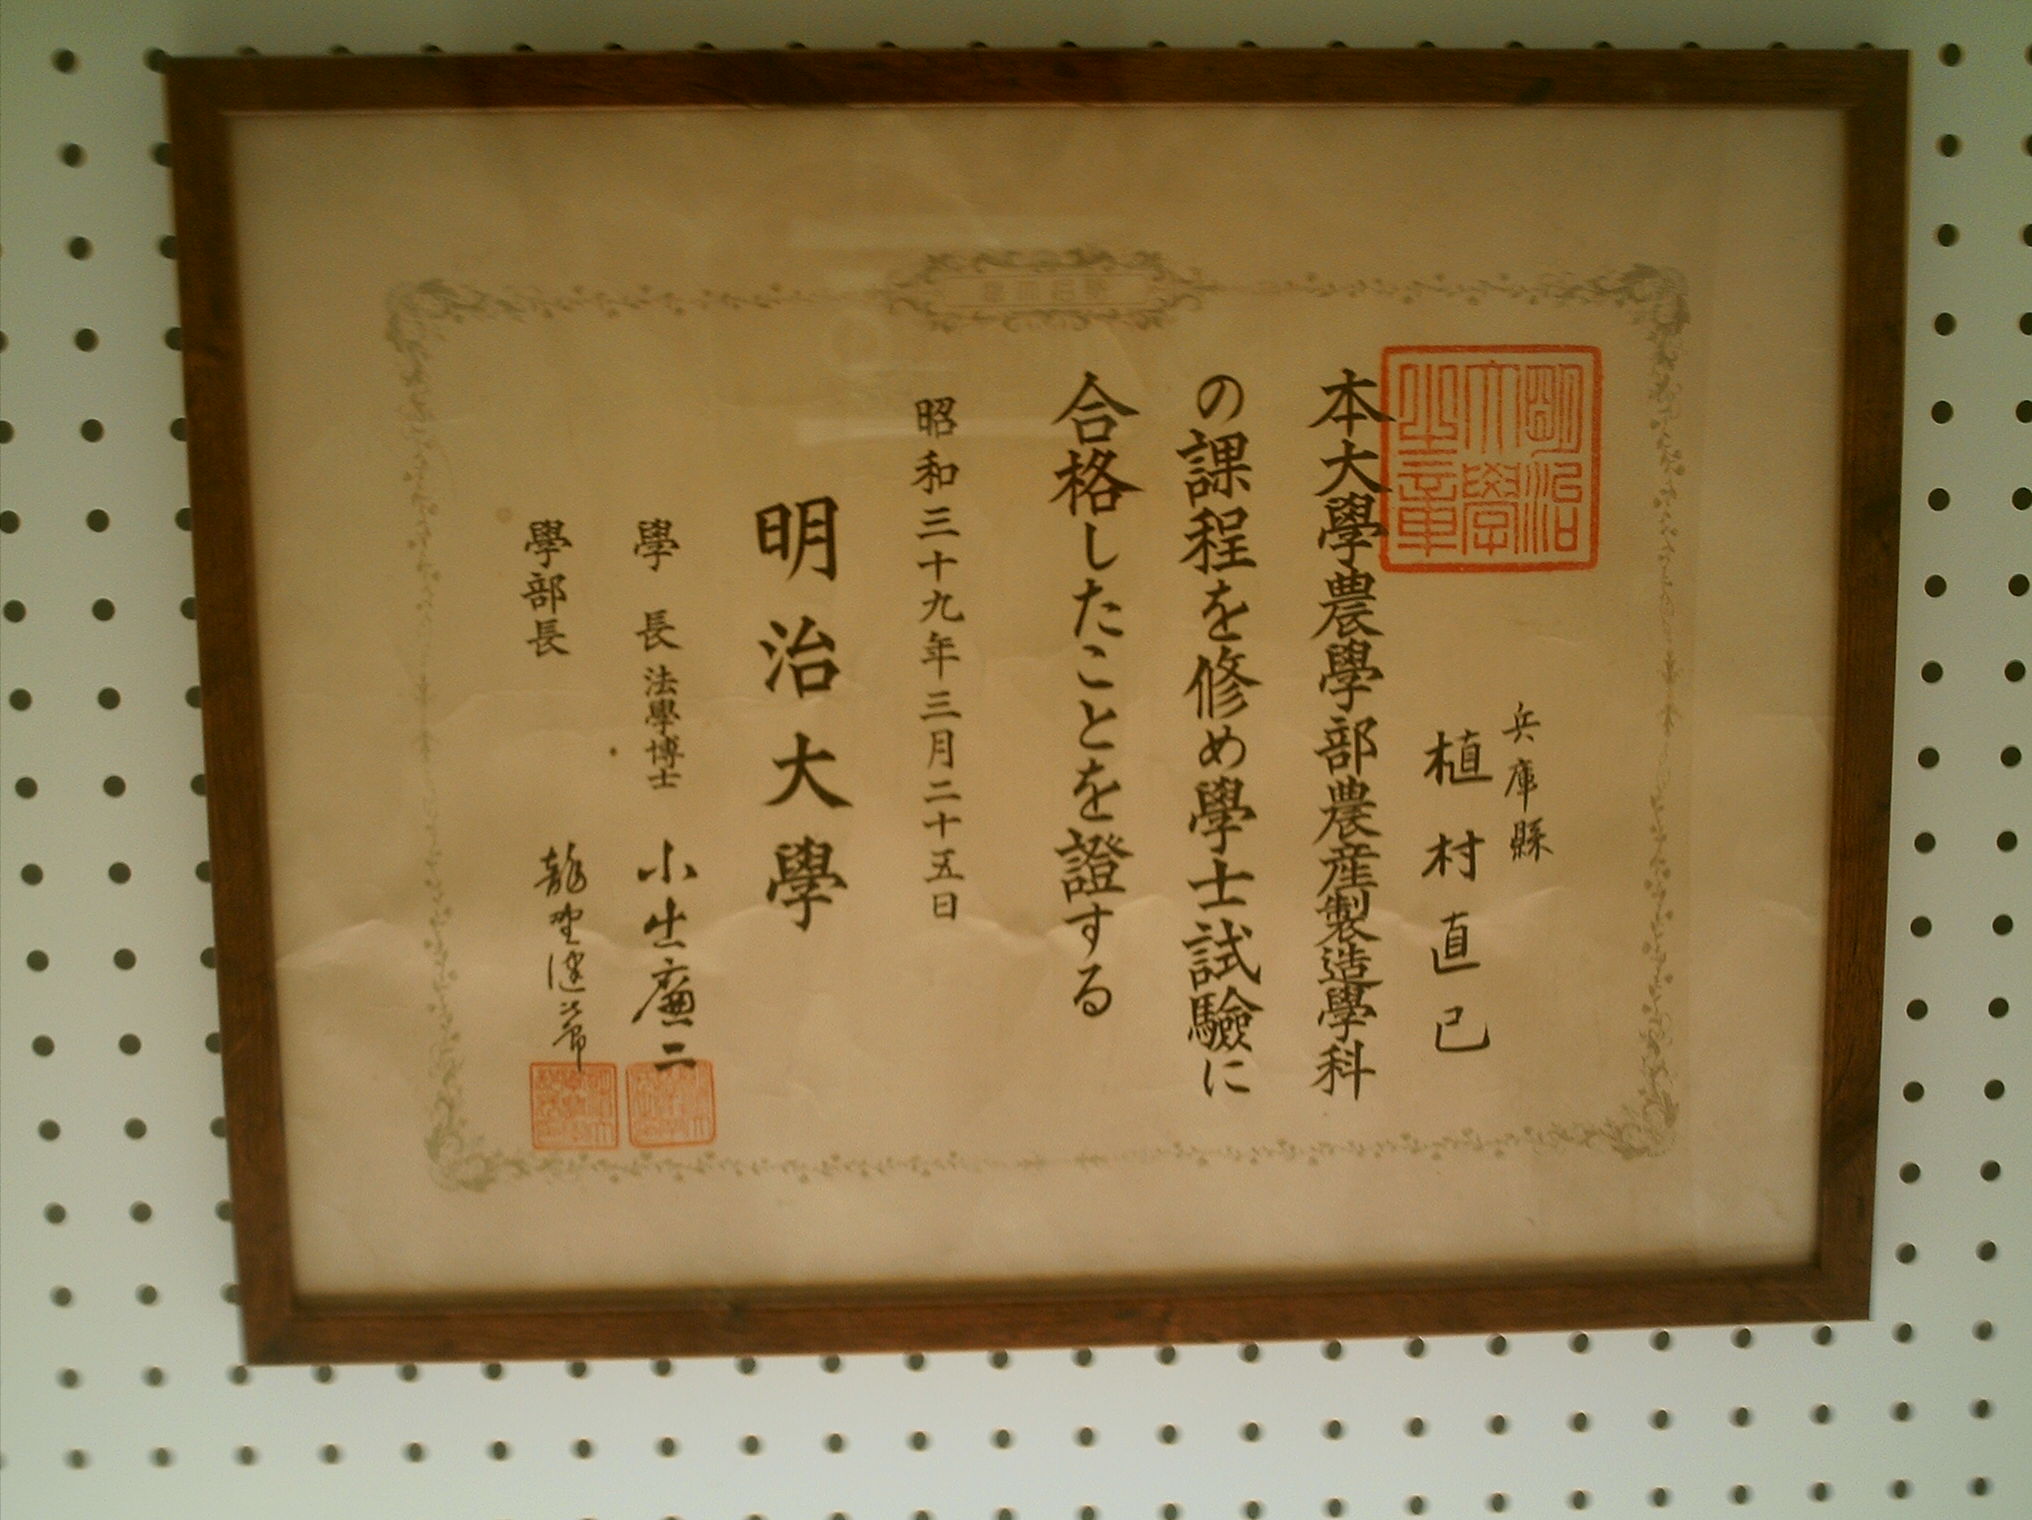 兵庫縣
植村直己
本大學農學部農産製造學科
の課程を修め學士試驗に
合格したことを證する
昭和三十九年三月二十五日
明治大學
學長 法學博士 小出廉二
學部長
明治大學之章